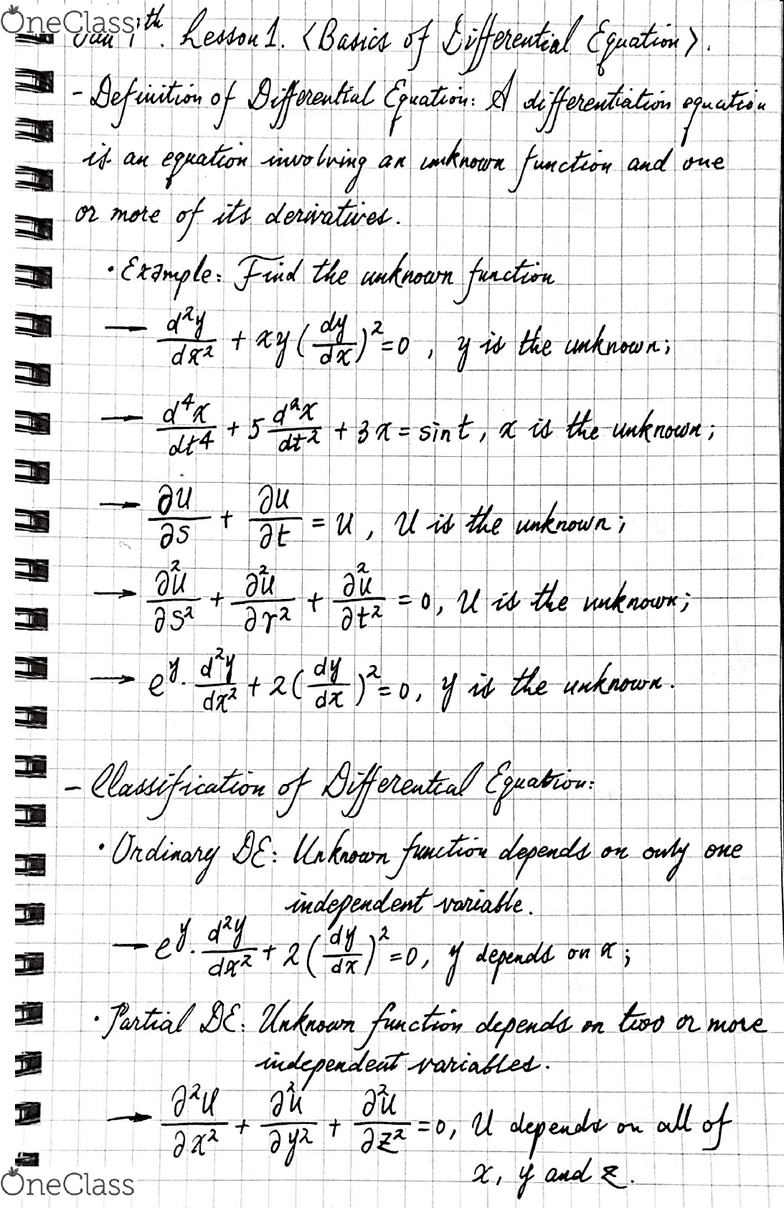 OneClass
Jan 7th. Lesson 1. <Basics of Differential Equation>.
- Definition of Differential Equation: A differentiation equation
is an equation involving an unknown function and one
or more of its derivatives.
• Example: Find the unknown function
→ d²y/dx² + xy(dy/dx)² = 0, y is the unknown;
→ d⁴x/dt⁴ + 5 d²x/dt² + 3x = sint, x is the unknown;
→ ∂U/∂s + ∂U/∂t = U, U is the unknown;
→ ∂²U/∂s² + ∂²U/∂r² + ∂²U/∂t² = 0, U is the unknown;
→ e^y · d²y/dx² + 2(dy/dx)² = 0, y is the unknown.
- Classification of Differential Equation:
• Ordinary DE: Unknown function depends on only one
independent variable.
→ e^y · d²y/dx² + 2(dy/dx)² = 0, y depends on x;
• Partial DE: Unknown function depends on two or more
independent variables.
→ ∂²U/∂x² + ∂²U/∂y² + ∂²U/∂z² = 0, U depends on all of
x, y and z.
OneClass